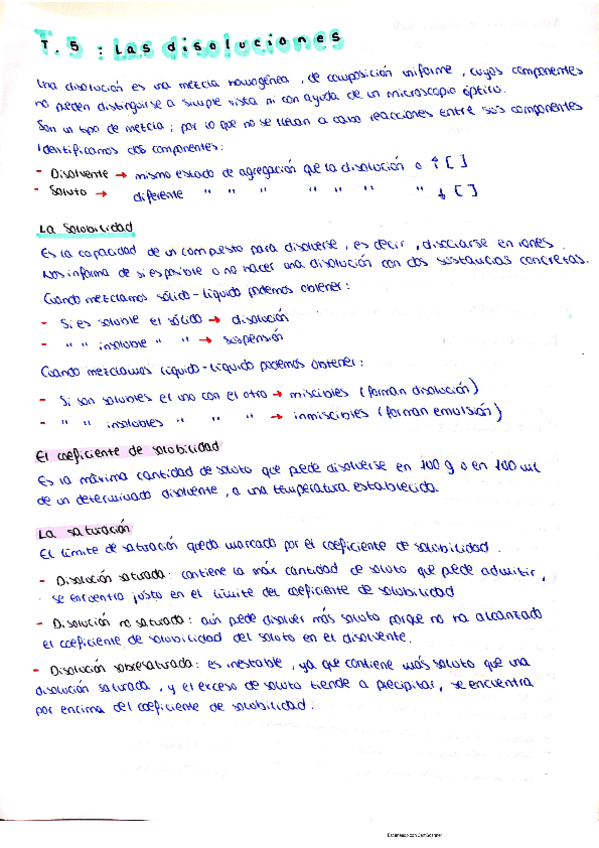 T. 5 : Las disoluciones
Una disolución es una mezcla homogénea, de composición uniforme, cuyos componentes
no pueden distinguirse a simple vista ni con ayuda de un microscopio óptico.
Son un tipo de mezcla; por lo que no se llevan a cabo reacciones entre sus componentes
Identificamos dos componentes:
- Disolvente → mismo estado de agregación que la disolución o ↑ [ ]
- Soluto → diferente " " " " " " " ↓ [ ]
La solubilidad
Es la capacidad de un compuesto para disolverse, es decir, disociarse en iones.
Nos informa de si es posible o no hacer una disolución con dos sustancias concretas.
Cuando mezclamos sólido-líquido podemos obtener:
- Si es soluble el sólido → disolución
- " " insoluble " " → suspensión
Cuando mezclamos líquido-líquido podemos obtener:
- Si son solubles el uno con el otro → miscibles (forman disolución)
- " " insolubles " " " " → inmiscibles (forman emulsión)
El coeficiente de solubilidad
Es la máxima cantidad de soluto que puede disolverse en 100 g o en 100 ml
de un determinado disolvente, a una temperatura establecida.
La saturación
El límite de saturación queda marcado por el coeficiente de solubilidad.
- Disolución saturada: contiene la máx cantidad de soluto que puede admitir,
se encuentra justo en el límite del coeficiente de solubilidad
- Disolución no saturada: aún puede disolver más soluto porque no ha alcanzado
el coeficiente de solubilidad del soluto en el disolvente.
- Disolución sobresaturada: es inestable, ya que contiene más soluto que una
disolución saturada, y el exceso de soluto tiende a precipitar, se encuentra
por encima del coeficiente de solubilidad.
Escaneado con CamScanner